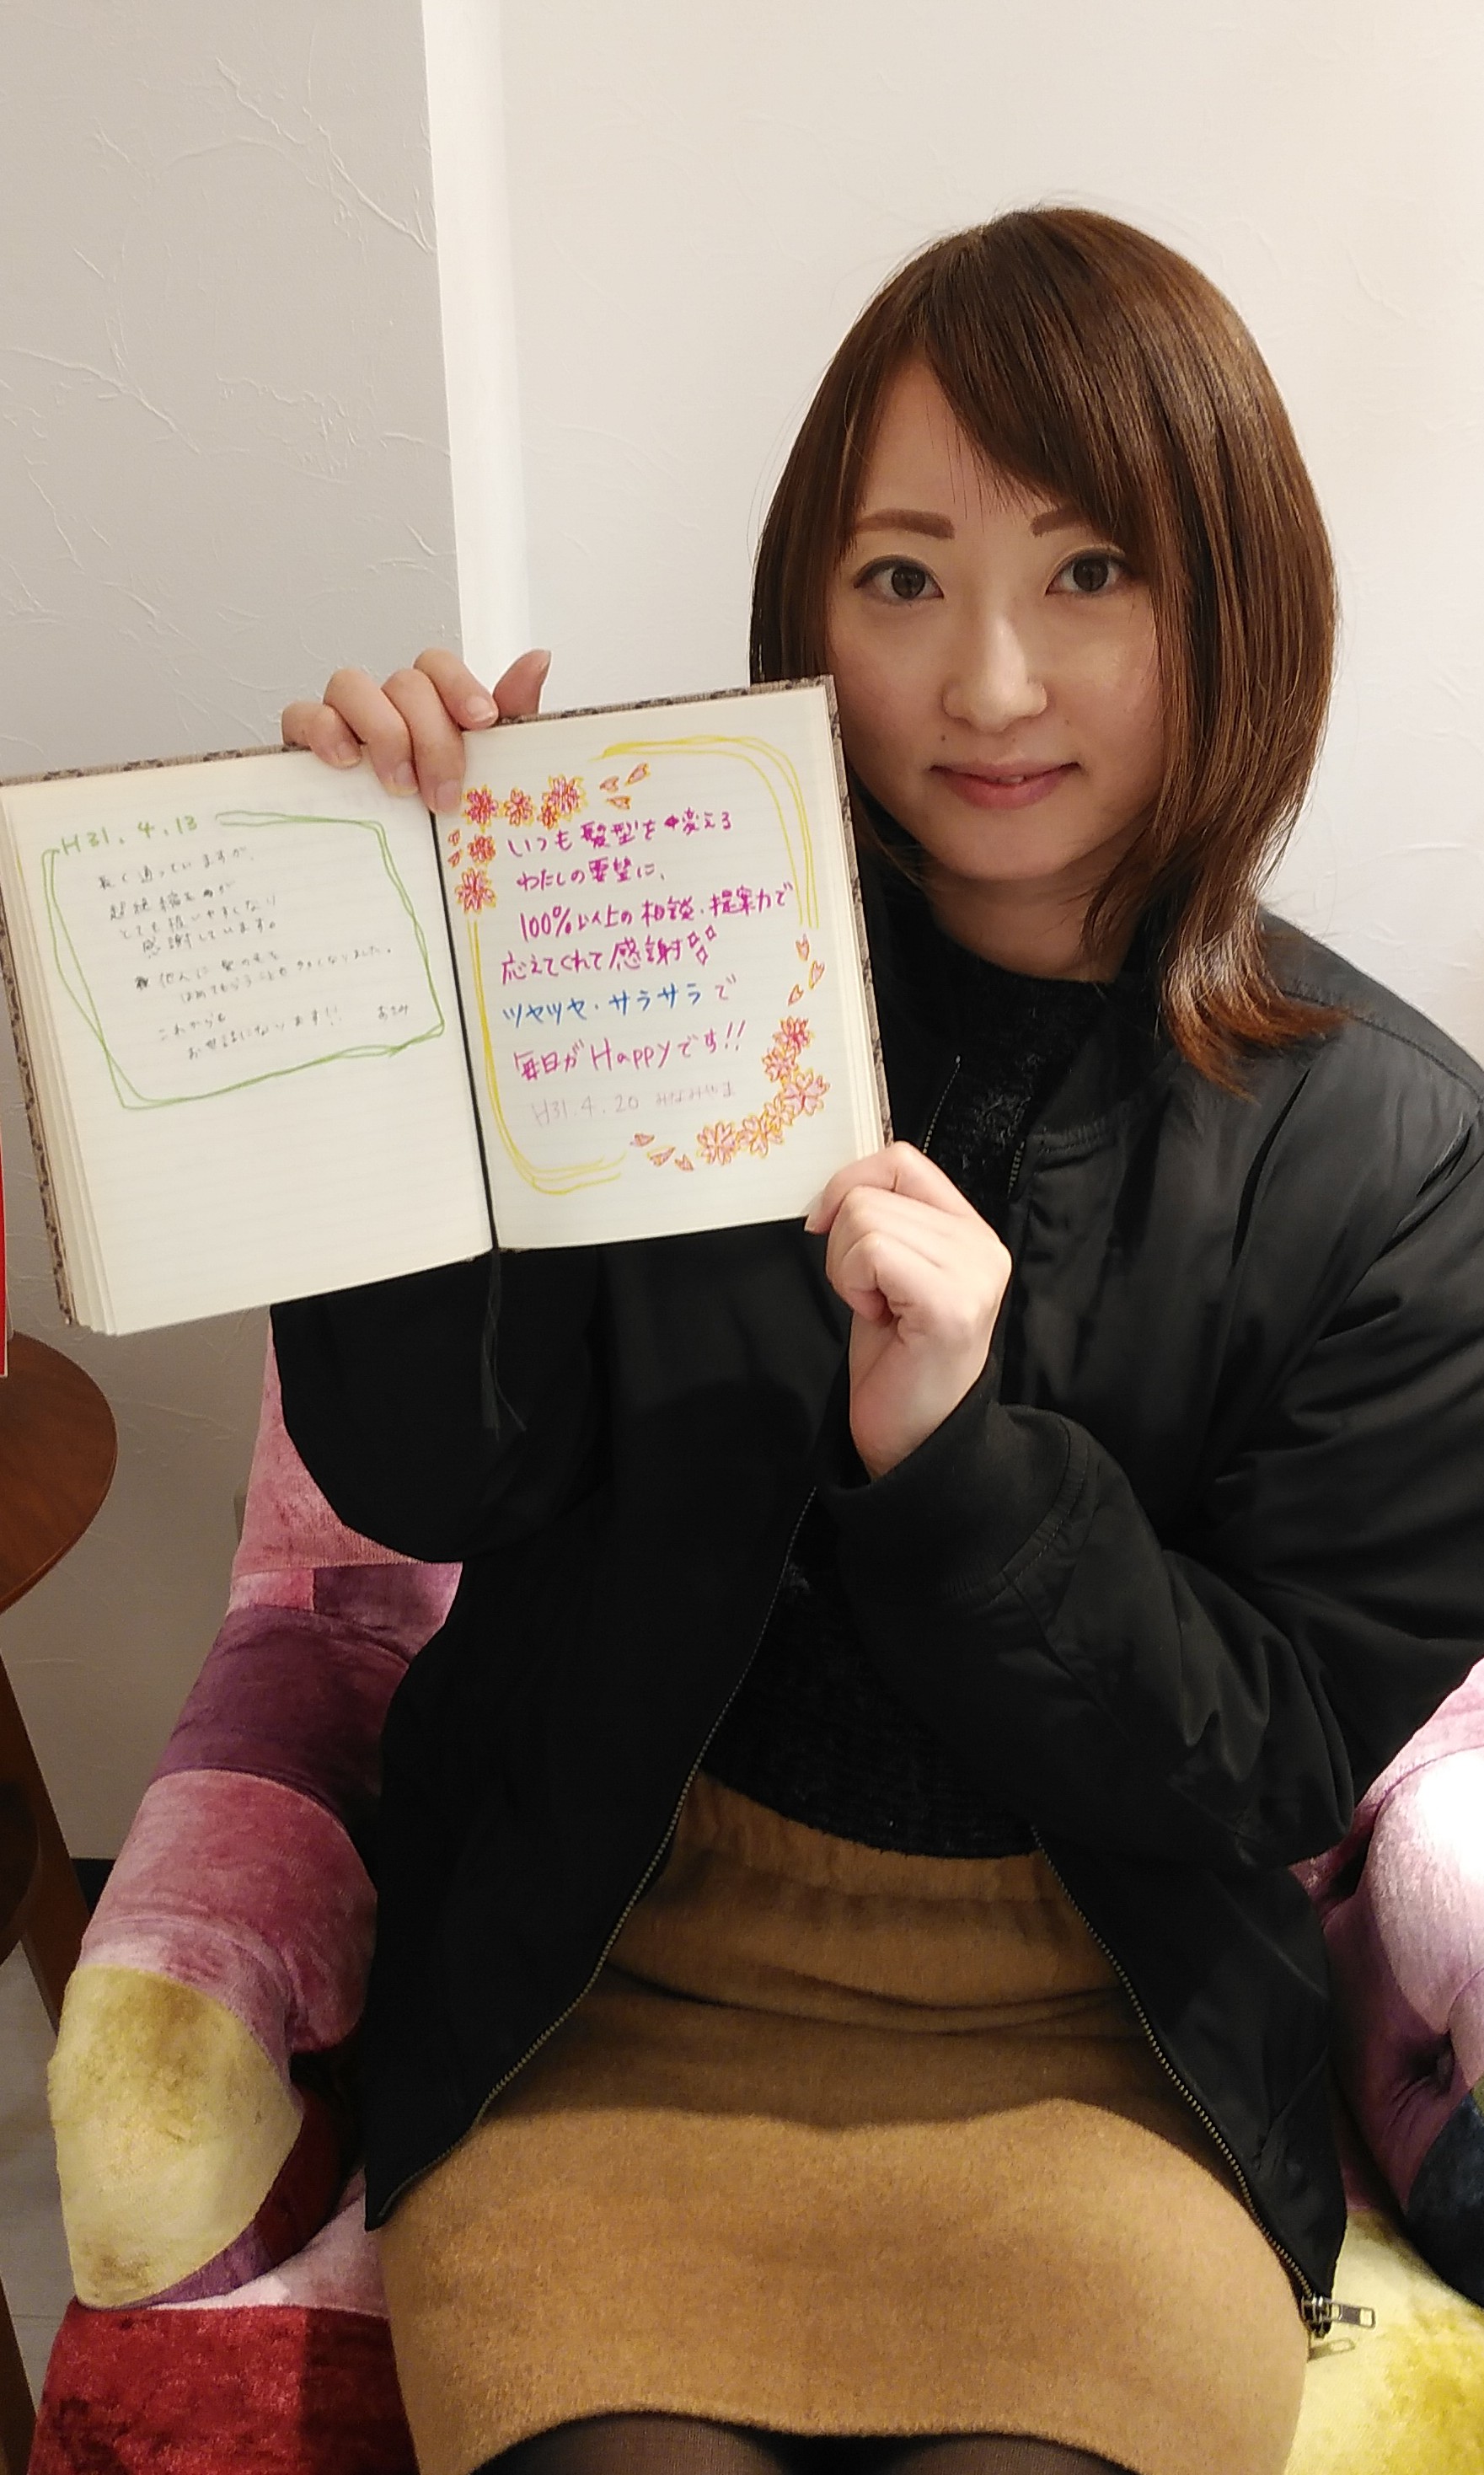 H31.4.13
長く通っていますが、
超絶縮毛が
とても扱いやすくなり
感謝しています。
他人に髪の毛を
ほめてもらうことも多くなりました。
これからも
お世話になります!!
いつも髪型を変える
わたしの要望に、
100%以上の相談・提案力で
応えてくれて感謝
ツヤツヤ・サラサラで
毎日がHappyです!!
H31.4.20 みなみやま